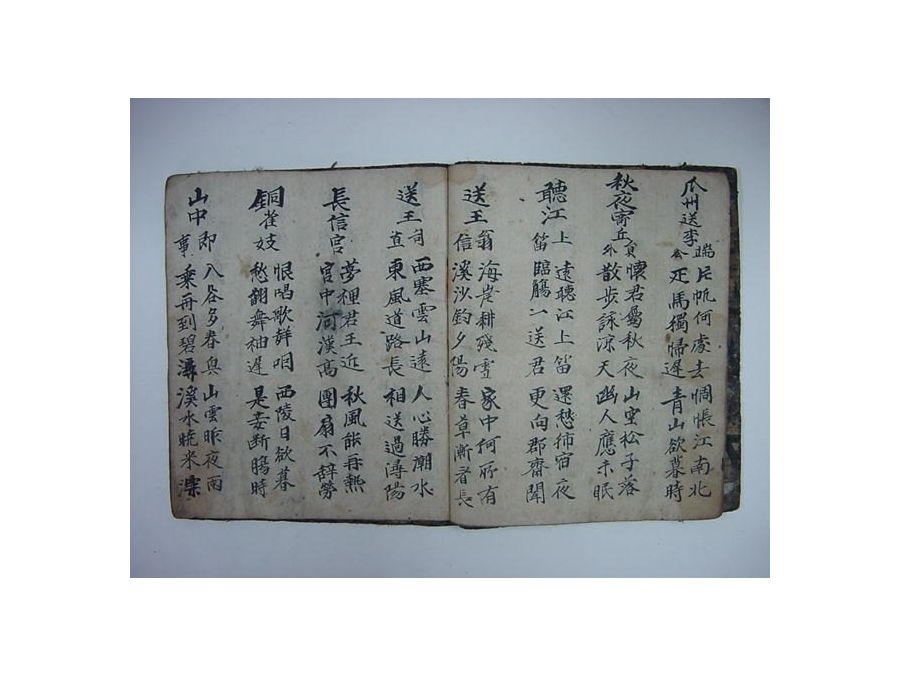 瓜州送李端公
片帆何處去 惆悵江南北
疋馬獨帰遲 青山欲暮時
秋夜寄丘員外
懷君屬秋夜 山空松子落
散步詠涼天 幽人應未眠
聽江上笛
遠聽江上笛 還愁独宿夜
臨觴一送君 更向郡齋聞
送王翁信
海岸耕殘雪 家中何所有
溪沙釣夕陽 春草漸看長
送王司直
西塞雲山遠 人心勝潮水
東風道路長 相送過潯陽
長信宮
夢裡君王近 秋風能再熱
宮中河漢高 團扇不辭勞
銅雀妓
恨唱歌聲咽 西陵日欲暮
愁翻舞袖遲 是妾斷膓時
山中即事
入谷多春興 山雲昨夜雨
乘舟到碧潯 溪水曉来深